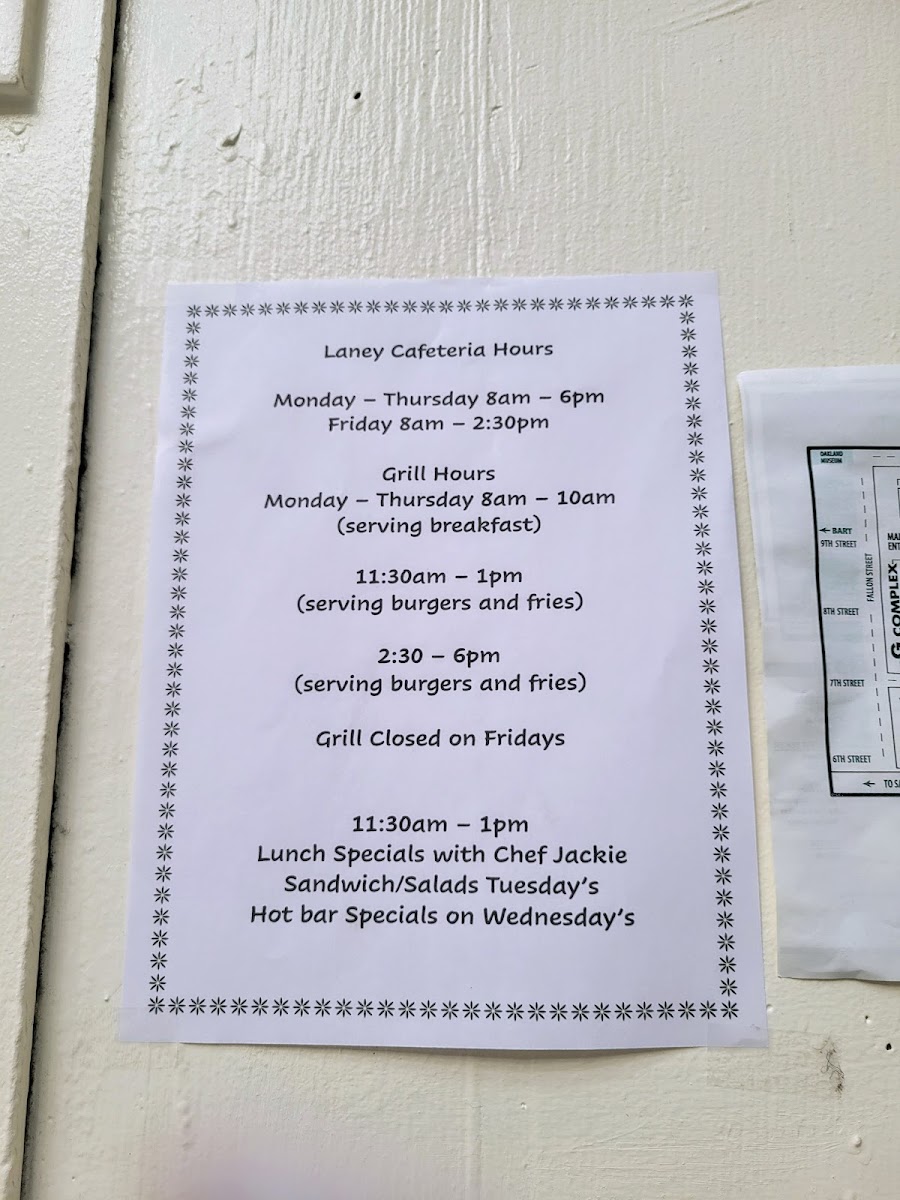 Laney Cafeteria Hours
Monday – Thursday 8am – 6pm
Friday 8am – 2:30pm
Grill Hours
Monday – Thursday 8am – 10am
(serving breakfast)
11:30am – 1pm
(serving burgers and fries)
2:30 – 6pm
(serving burgers and fries)
Grill Closed on Fridays
11:30am – 1pm
Lunch Specials with Chef Jackie
Sandwich/Salads Tuesday's
Hot bar Specials on Wednesday's
OAKLAND
MUSEUM
← BART
9TH STREET
FALLON STREET
8TH STREET
G COMPLEX
7TH STREET
6TH STREET
← TO